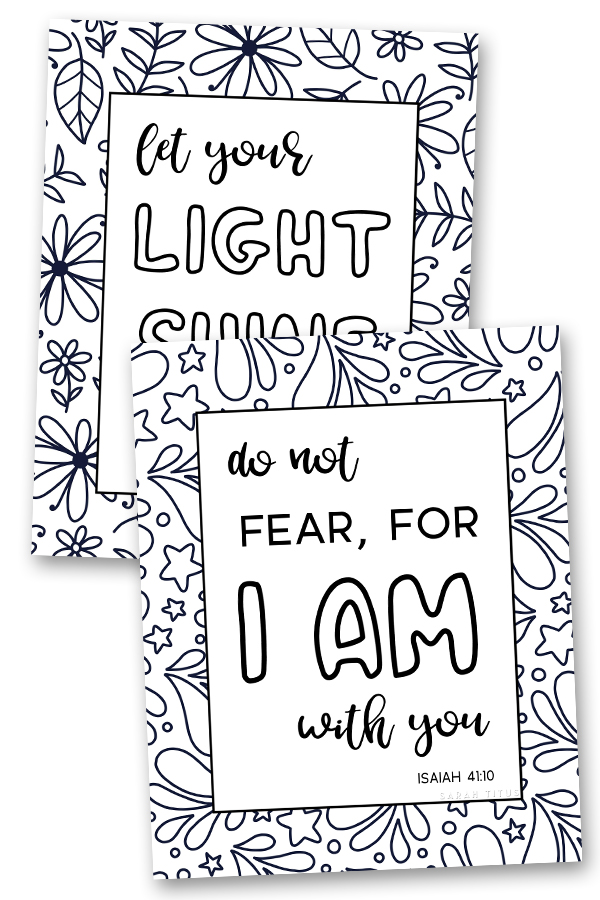 let your
LIGHT
SHINE
do not
FEAR, FOR
I AM
with you
ISAIAH 41:10
SARAH TITUS